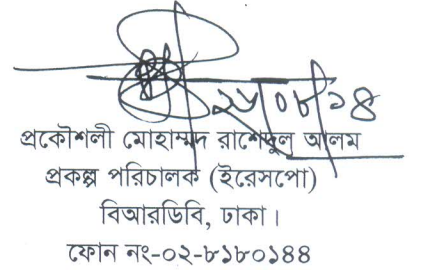 ২৮/০৮/১৪
প্রকৌশলী মোহাম্মদ রাশেদুল আলম
প্রকল্প পরিচালক (ইরেসপো)
বিআরডিবি, ঢাকা।
ফোন নং-০২-৮১৮০১৪৪